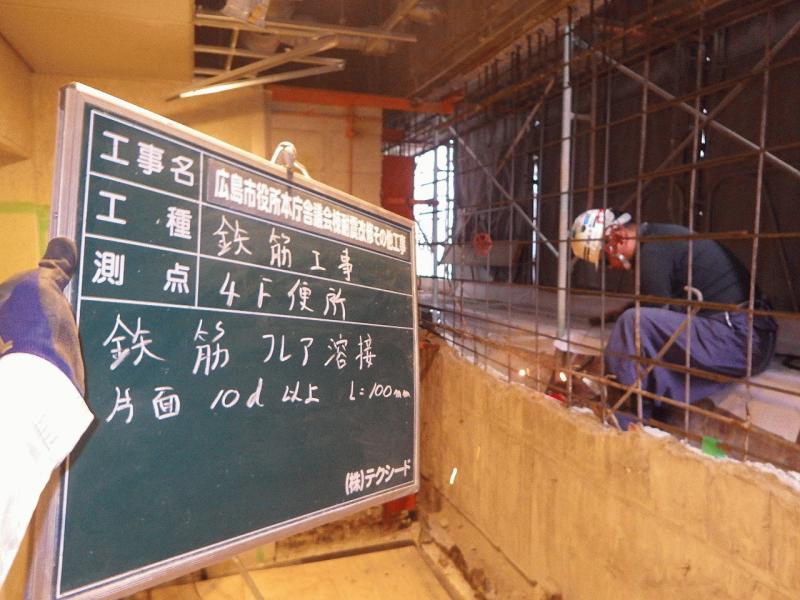 工事名 広島市役所本庁舎議会棟耐震改修その他工事
工種 鉄筋工事
測点 4F便所
鉄筋 フレア溶接
片面 10d 以上 L=100mm
(株)テクシード